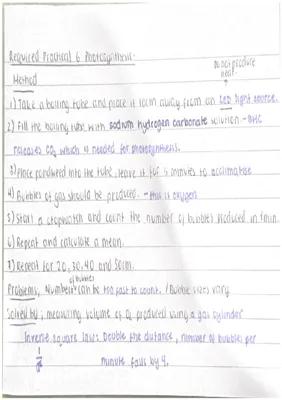 Required Practical 6 Photosynthesis.
Do not produce
heat.
Method
1) Take a boiling tube and place it 10cm away from an LED light source.
2) Fill the boiling tube with sodium hydrogen carbonate solution - this
releases CO₂ which is needed for photosynthesis.
3) Place pondweed into the tube, leave it for 5 minutes to acclimatise
4) Bubbles of gas should be produced. - this is oxygen
5) Start a stopwatch and count the number of bubbles produced in 1min.
6) Repeat and calculate a mean.
7) Repeat for 20, 30, 40 and 50cm.
of bubbles
Problems, Number can be too fast to count. / Bubble sizes vary
Solved by; measuring volume of O₂ produced using a gas cylinder
Inverse square laws. Double the distance, number of bubbles per
minute falls by 4.